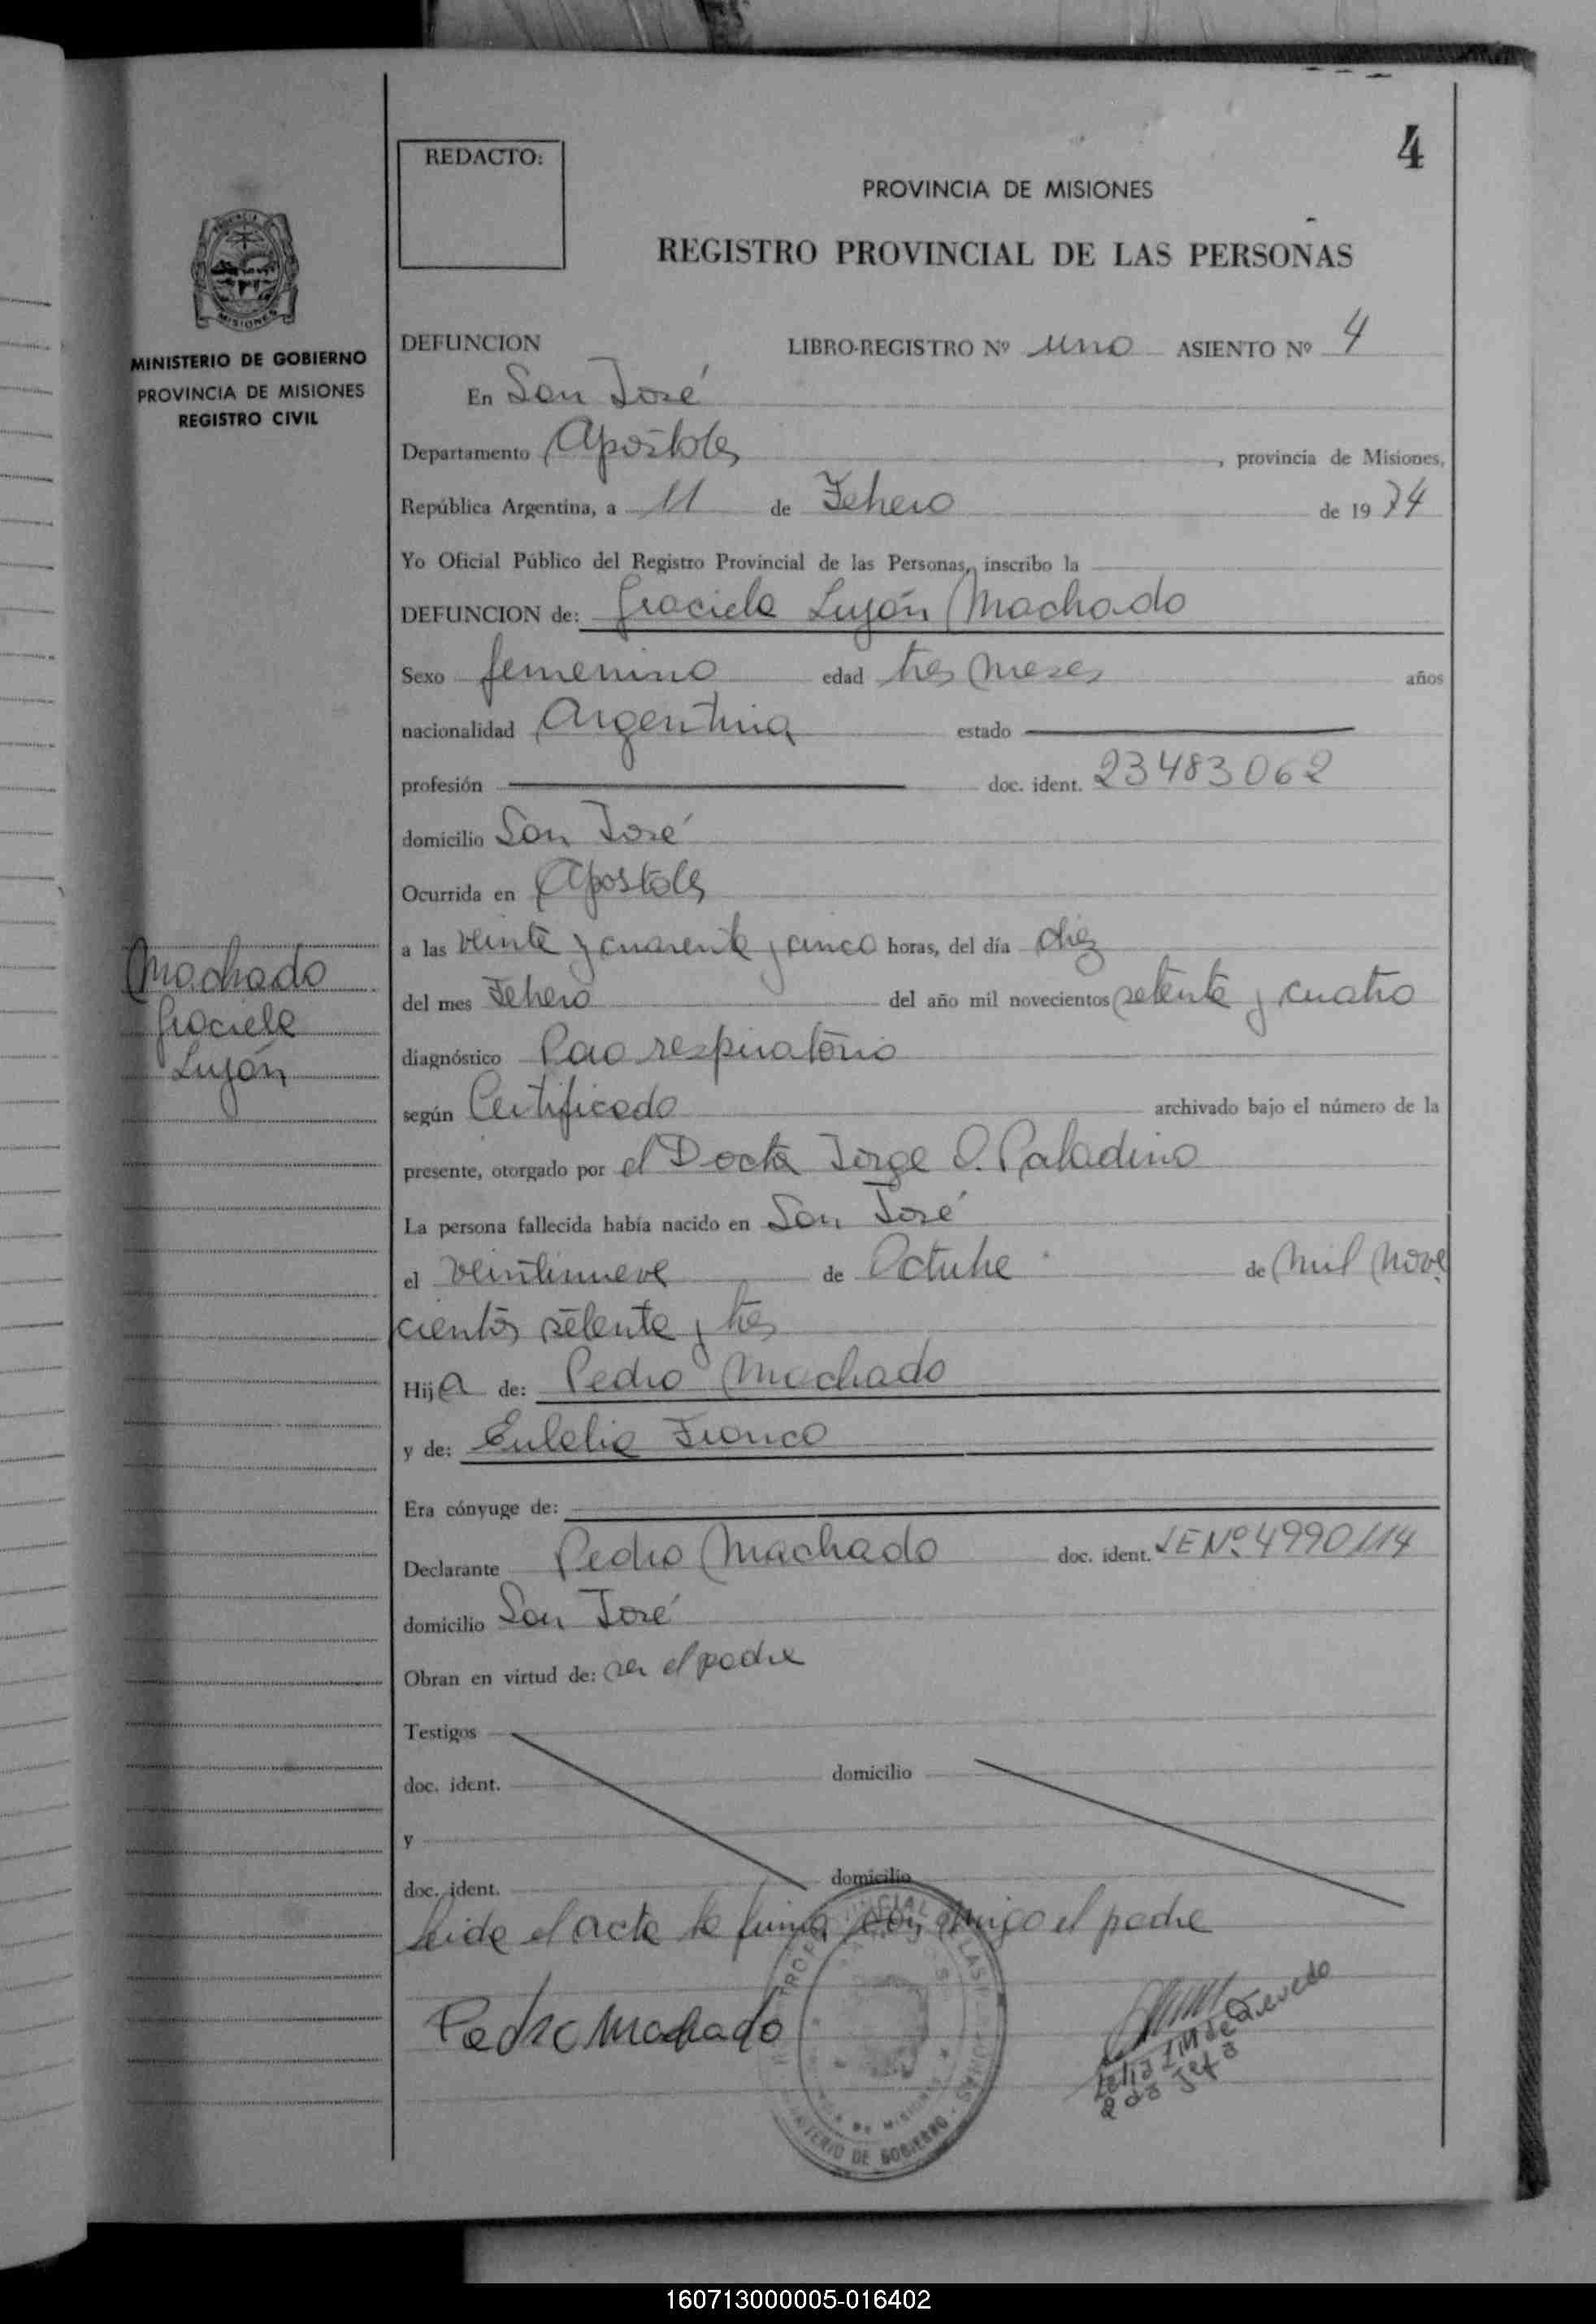 4
REDACTO:
PROVINCIA DE MISIONES
REGISTRO PROVINCIAL DE LAS PERSONAS
MINISTERIO DE GOBIERNO
PROVINCIA DE MISIONES
REGISTRO CIVIL
DEFUNCION LIBRO-REGISTRO Nº uno ASIENTO Nº 4
En San José
Departamento Apóstoles, provincia de Misiones,
República Argentina, a 11 de Febrero de 1974
Yo Oficial Público del Registro Provincial de las Personas, inscribo la
DEFUNCION de: Graciela Luján Machado
Sexo femenino edad tres meses años
nacionalidad Argentina estado
profesión doc. ident. 23483062
domicilio San José
Ocurrida en Apóstoles
a las veinte y cuarenta y cinco horas, del día diez
del mes Febrero del año mil novecientos setenta y cuatro
Machado
Graciela
Luján
diagnóstico Paro respiratorio
según Certificado archivado bajo el número de la
presente, otorgado por el Doctor Jorge O. Paladino
La persona fallecida había nacido en San José
el veintinueve de Octubre de mil nove
cientos setenta y tres
Hija de: Pedro Machado
y de: Eulalia Franco
Era cónyuge de:
Declarante Pedro Machado doc. ident. LE Nº 4990114
domicilio San José
Obran en virtud de: ser el padre
Testigos
doc. ident. domicilio
y
doc. ident. domicilio
Leída el acta la firma conmigo el padre
Pedro Machado
de Quevedo
2da Jefa
MINISTERIO DE GOBIERNO
160713000005-016402